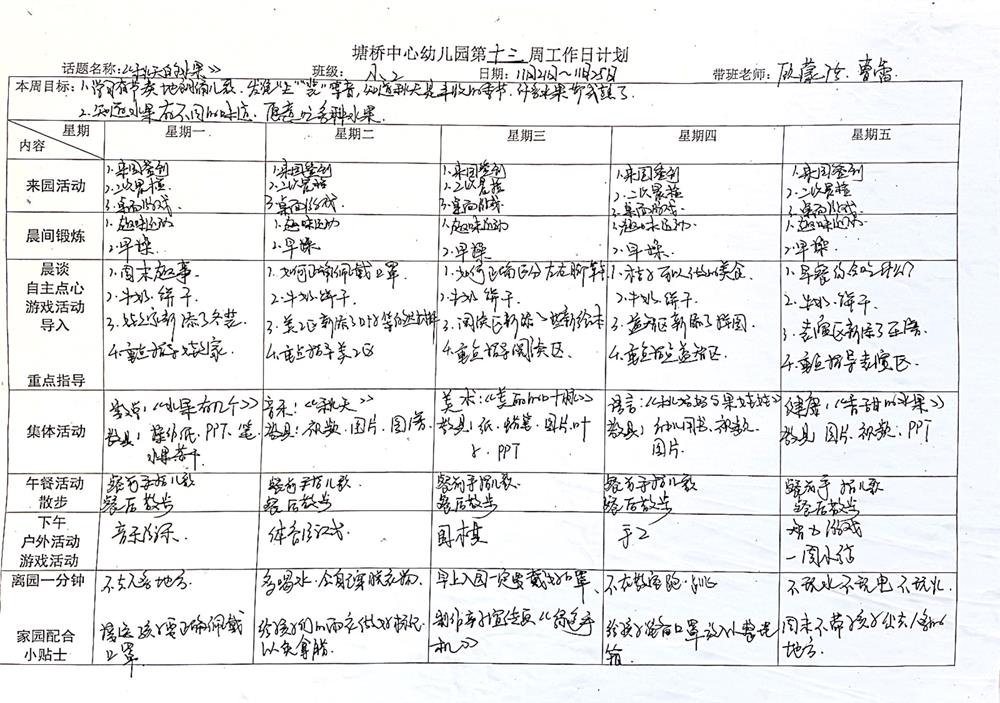 塘桥中心幼儿园第十三周工作日计划
话题名称:《秋天的水果》 班级: 小2 日期: 11月21日~11月25日 带班老师:
本周目标: 1.学习有节奏地朗诵儿歌, 知道秋天是丰收的季节,
2.知道水果有不同的味道, 愿意吃各种水果。
星期 星期一 星期二 星期三 星期四 星期五
内容
来园活动
1.来园签到 1.来园签到 1.来园签到 1.来园签到 1.来园签到
2.二次晨检 2.二次晨检 2.二次晨检 2.二次晨检 2.二次晨检
3.桌面游戏 3.桌面游戏 3.桌面游戏 3.桌面游戏 3.桌面游戏
晨间锻炼
1.趣味运动 1.趣味运动 1.趣味运动 1.趣味运动 1.趣味运动
2.早操 2.早操 2.早操 2.早操 2.早操
晨谈
自主点心
游戏活动
导入
重点指导
1.周末趣事 1.如何正确佩戴口罩 1.如何正确区分左右脚 1.桔子可以做的美食 1.早餐你会吃什么?
2.牛奶.饼干 2.牛奶.饼干 2.牛奶.饼干 2.牛奶.饼干 2.牛奶.饼干
3.娃娃家新添了冬装 3.美工区新添了叶子等自然材料 3.阅读区新添了些新绘本 3.益智区新添了拼图 3.表演区新添了
4.重点指导娃娃家 4.重点指导美工区 4.重点指导阅读区. 4.重点指导益智区. 4.重点指导表演区
集体活动
数学:《水果有几个》 音乐:《秋天》 美术:《美丽的叶脉》 语言: 健康:《香甜的水果》
教具: 操作纸.PPT.笔 教具: 视频.图片.图谱 教具: 纸.蜡笔.图片.叶 教具: 视频. 教具 图片.视频.PPT
水果若干 子.PPT 图片.
午餐活动
散步
餐前手指儿歌 餐前手指儿歌 餐前手指儿歌 餐前手指儿歌 餐前手指儿歌
餐后散步 餐后散步 餐后散步 餐后散步 餐后散步
下午
户外活动
游戏活动
音乐游戏 体育游戏 围棋 手工 智力游戏
离园一分钟
不去人多地方. 多喝水.会自己穿脱衣物. 早上入园一定要戴好口罩、 不在教室跑、 不玩水不玩电不玩火
家园配合
小贴士
请让孩子要正确佩戴 给孩子们的雨衣做好标记 制作亲子宣传页 给孩子备口罩放入小书包 周末不带孩子们去人多的
口罩 以免拿错. 机》 地方.